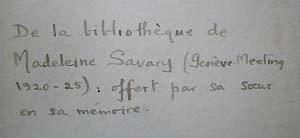 De la bibliothèque de
Madeleine Savary (Genève-Meeting
1920-25) ; offert par sa sœur
en sa mémoire.